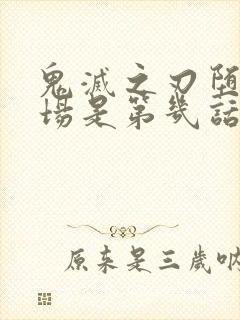 鬼滅之刃堕
場是第幾話
原来是三歲吶